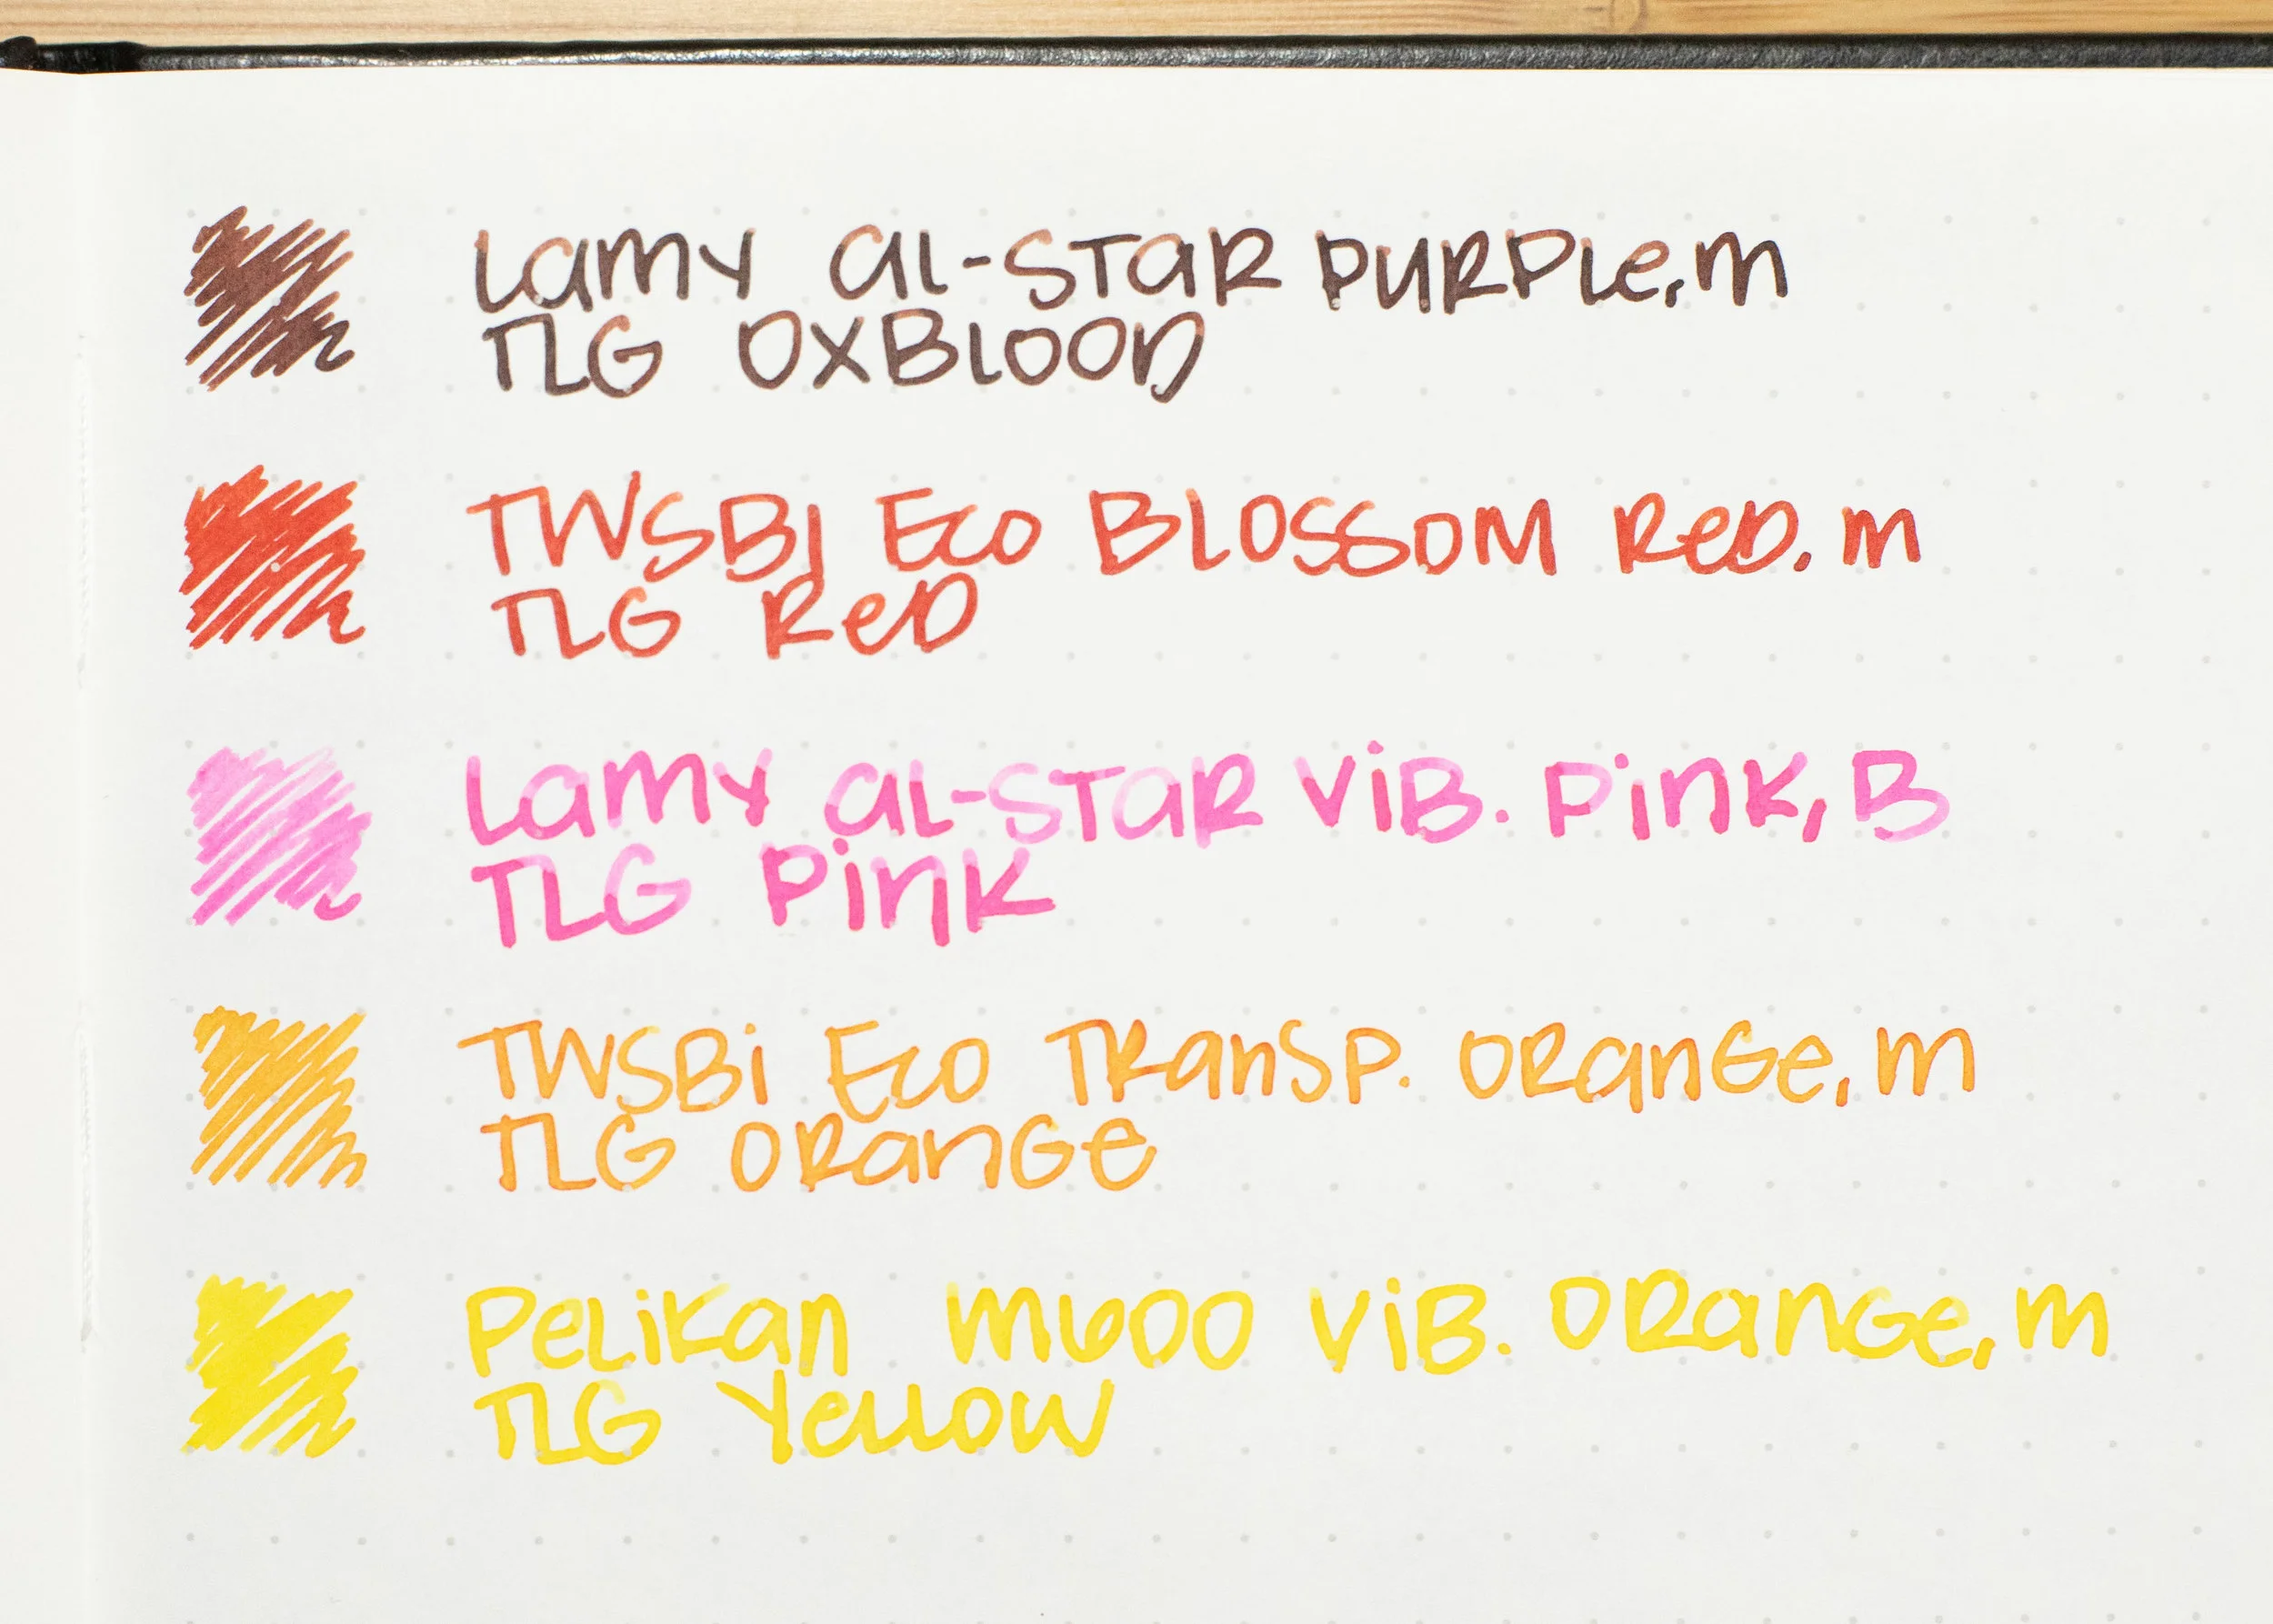 Lamy al-Star Purple, m
TLG OxBlood
TWSBI Eco Blossom Red, m
TLG Red
Lamy al-Star Vib. Pink, B
TLG Pink
TWSBi Eco Transp. Orange, m
TLG Orange
Pelikan m600 Vib. Orange, m
TLG Yellow